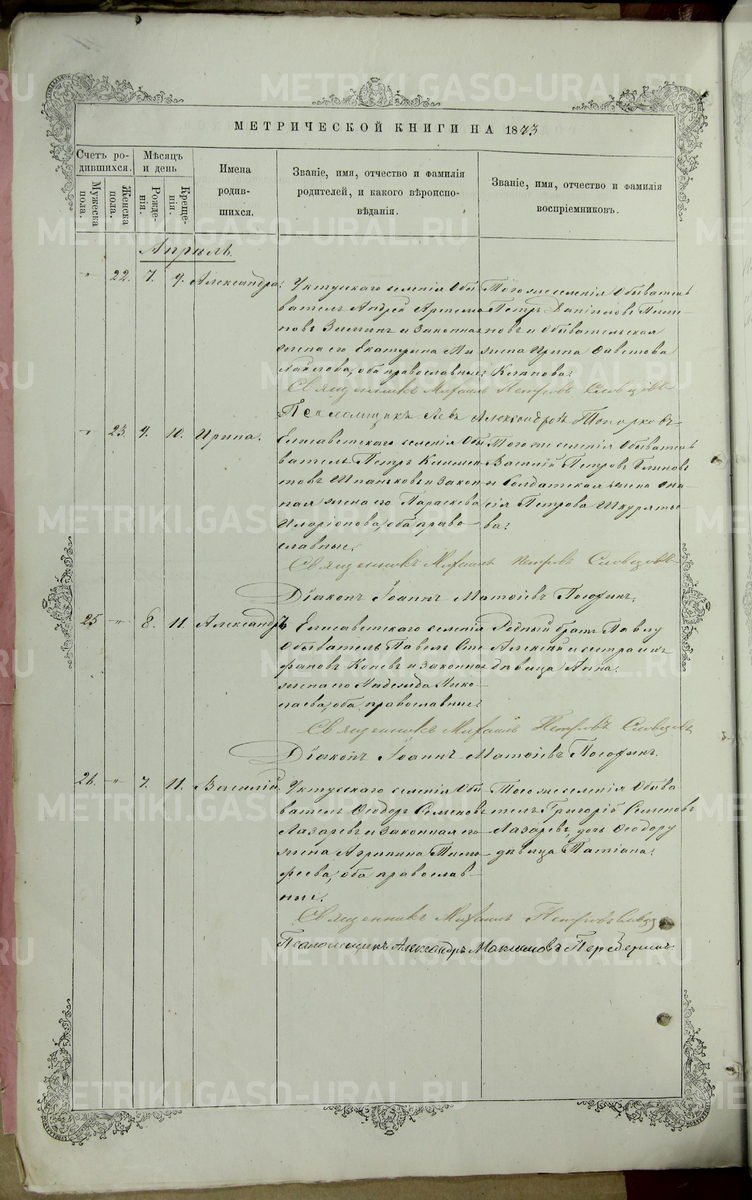 МЕТРИЧЕСКОЙ КНИГИ НА 1873
Счетъ родившихся.
Мужеска пола.
Женска пола.
Мѣсяцъ и день
Рожденія.
Крещенія.
Имена родившихся.
Званіе, имя, отчество и фамилія родителей, и какого вѣроисповѣданія.
Званіе, имя, отчество и фамилія воспріемниковъ.
Апрѣль.
" 22. 7. 9. Александра.
Уктусскаго селенія Обы-
ватель Андрей Артемо-
новъ Зиминъ и законная
жена его Екатерина Ми-
хайлова, оба православные.
Того же селенія Обыватель
Петръ Даніиловъ
новъ и Обывательская
жена Ирина Савѣтова
Священникъ Михаилъ Петровъ Словцовъ
Псаломщикъ Левъ Александровъ Топорковъ
" 23. 9. 10. Ирина.
Елисаветскаго селенія Обы-
ватель Петръ Климен-
товъ Шпаньковъ и закон-
ная жена его Параскева
Иларіонова, оба право-
славные.
Того же селенія Обыватель
Василій Петровъ
и Солдатская жена
сія Петрова
ва.
Священникъ Михаилъ Петровъ Словцовъ
Діаконъ Іоаннъ Матѳіевъ Погожинъ.
25 " 8. 11. Александръ
Елисаветскаго селенія
Обыватель Павелъ Сте-
фановъ Коневъ и законная
жена его Надежда Нико-
лаева, оба православные.
Родный братъ Павлу
Алексій и сестра ихъ
дѣвица Анна.
Священникъ Михаилъ Петровъ Словцовъ
Діаконъ Іоаннъ Матѳіевъ Погожинъ.
26. " 7. 11. Василій.
Уктусскаго селенія Обы-
ватель Ѳеодоръ Семеновъ
Лазаревъ и законная его
жена Агрипина Тимо-
феева, оба православ-
ные.
Того же селенія Обыва-
тель Григорій Семеновъ
Лазаревъ, дочь Ѳеодору
дѣвица Татіана.
Священникъ Михаилъ Петровъ Словцовъ
Псаломщикъ Александръ Максимовъ
METRIKI.GASO-URAL.RU